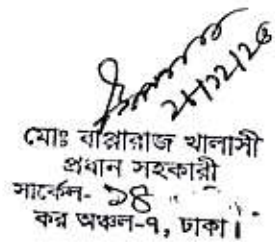 ২১/১২/২৫
মোঃ বাপ্পারাজ খালাসী
প্রধান সহকারী
সার্কেল- ১৪
কর অঞ্চল-৭, ঢাকা।